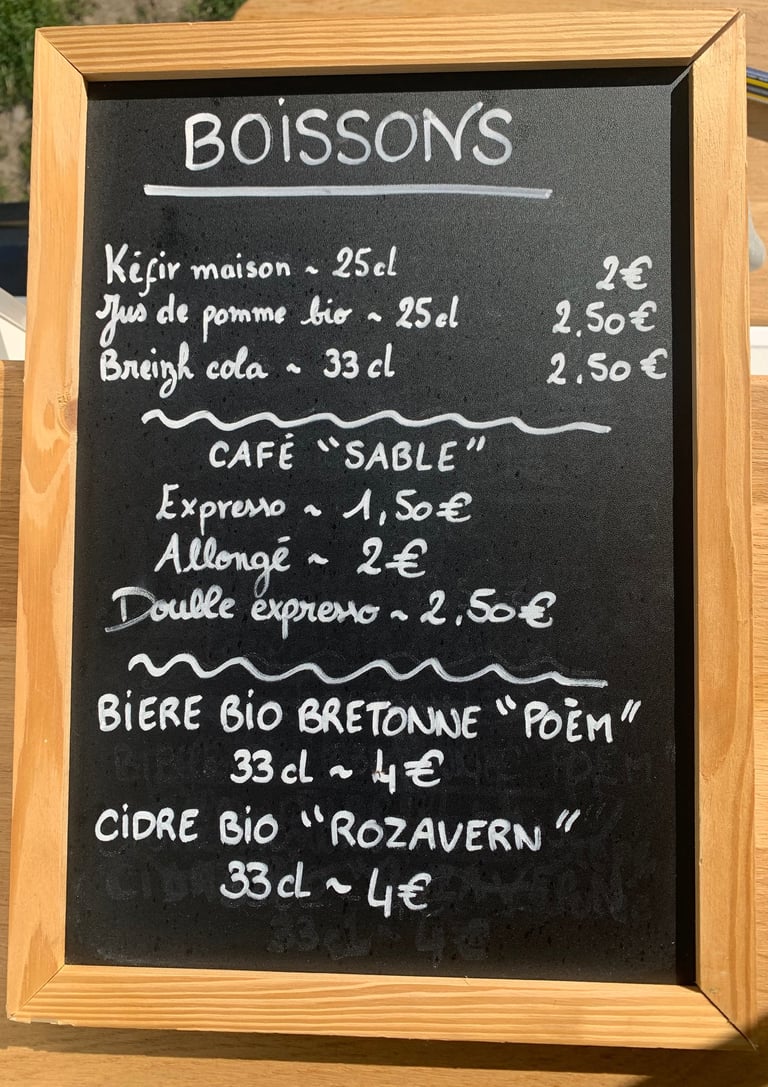 BOISSONS
Kéfir maison ~ 25cl 2€
Jus de pomme bio ~ 25cl 2,50€
Breizh cola ~ 33cl 2,50€
CAFÉ "SABLE"
Expresso ~ 1,50€
Allongé ~ 2€
Double expresso ~ 2,50€
BIERE BIO BRETONNE "POÈM"
33cl ~ 4€
CIDRE BIO "ROZAVERN"
33cl ~ 4€